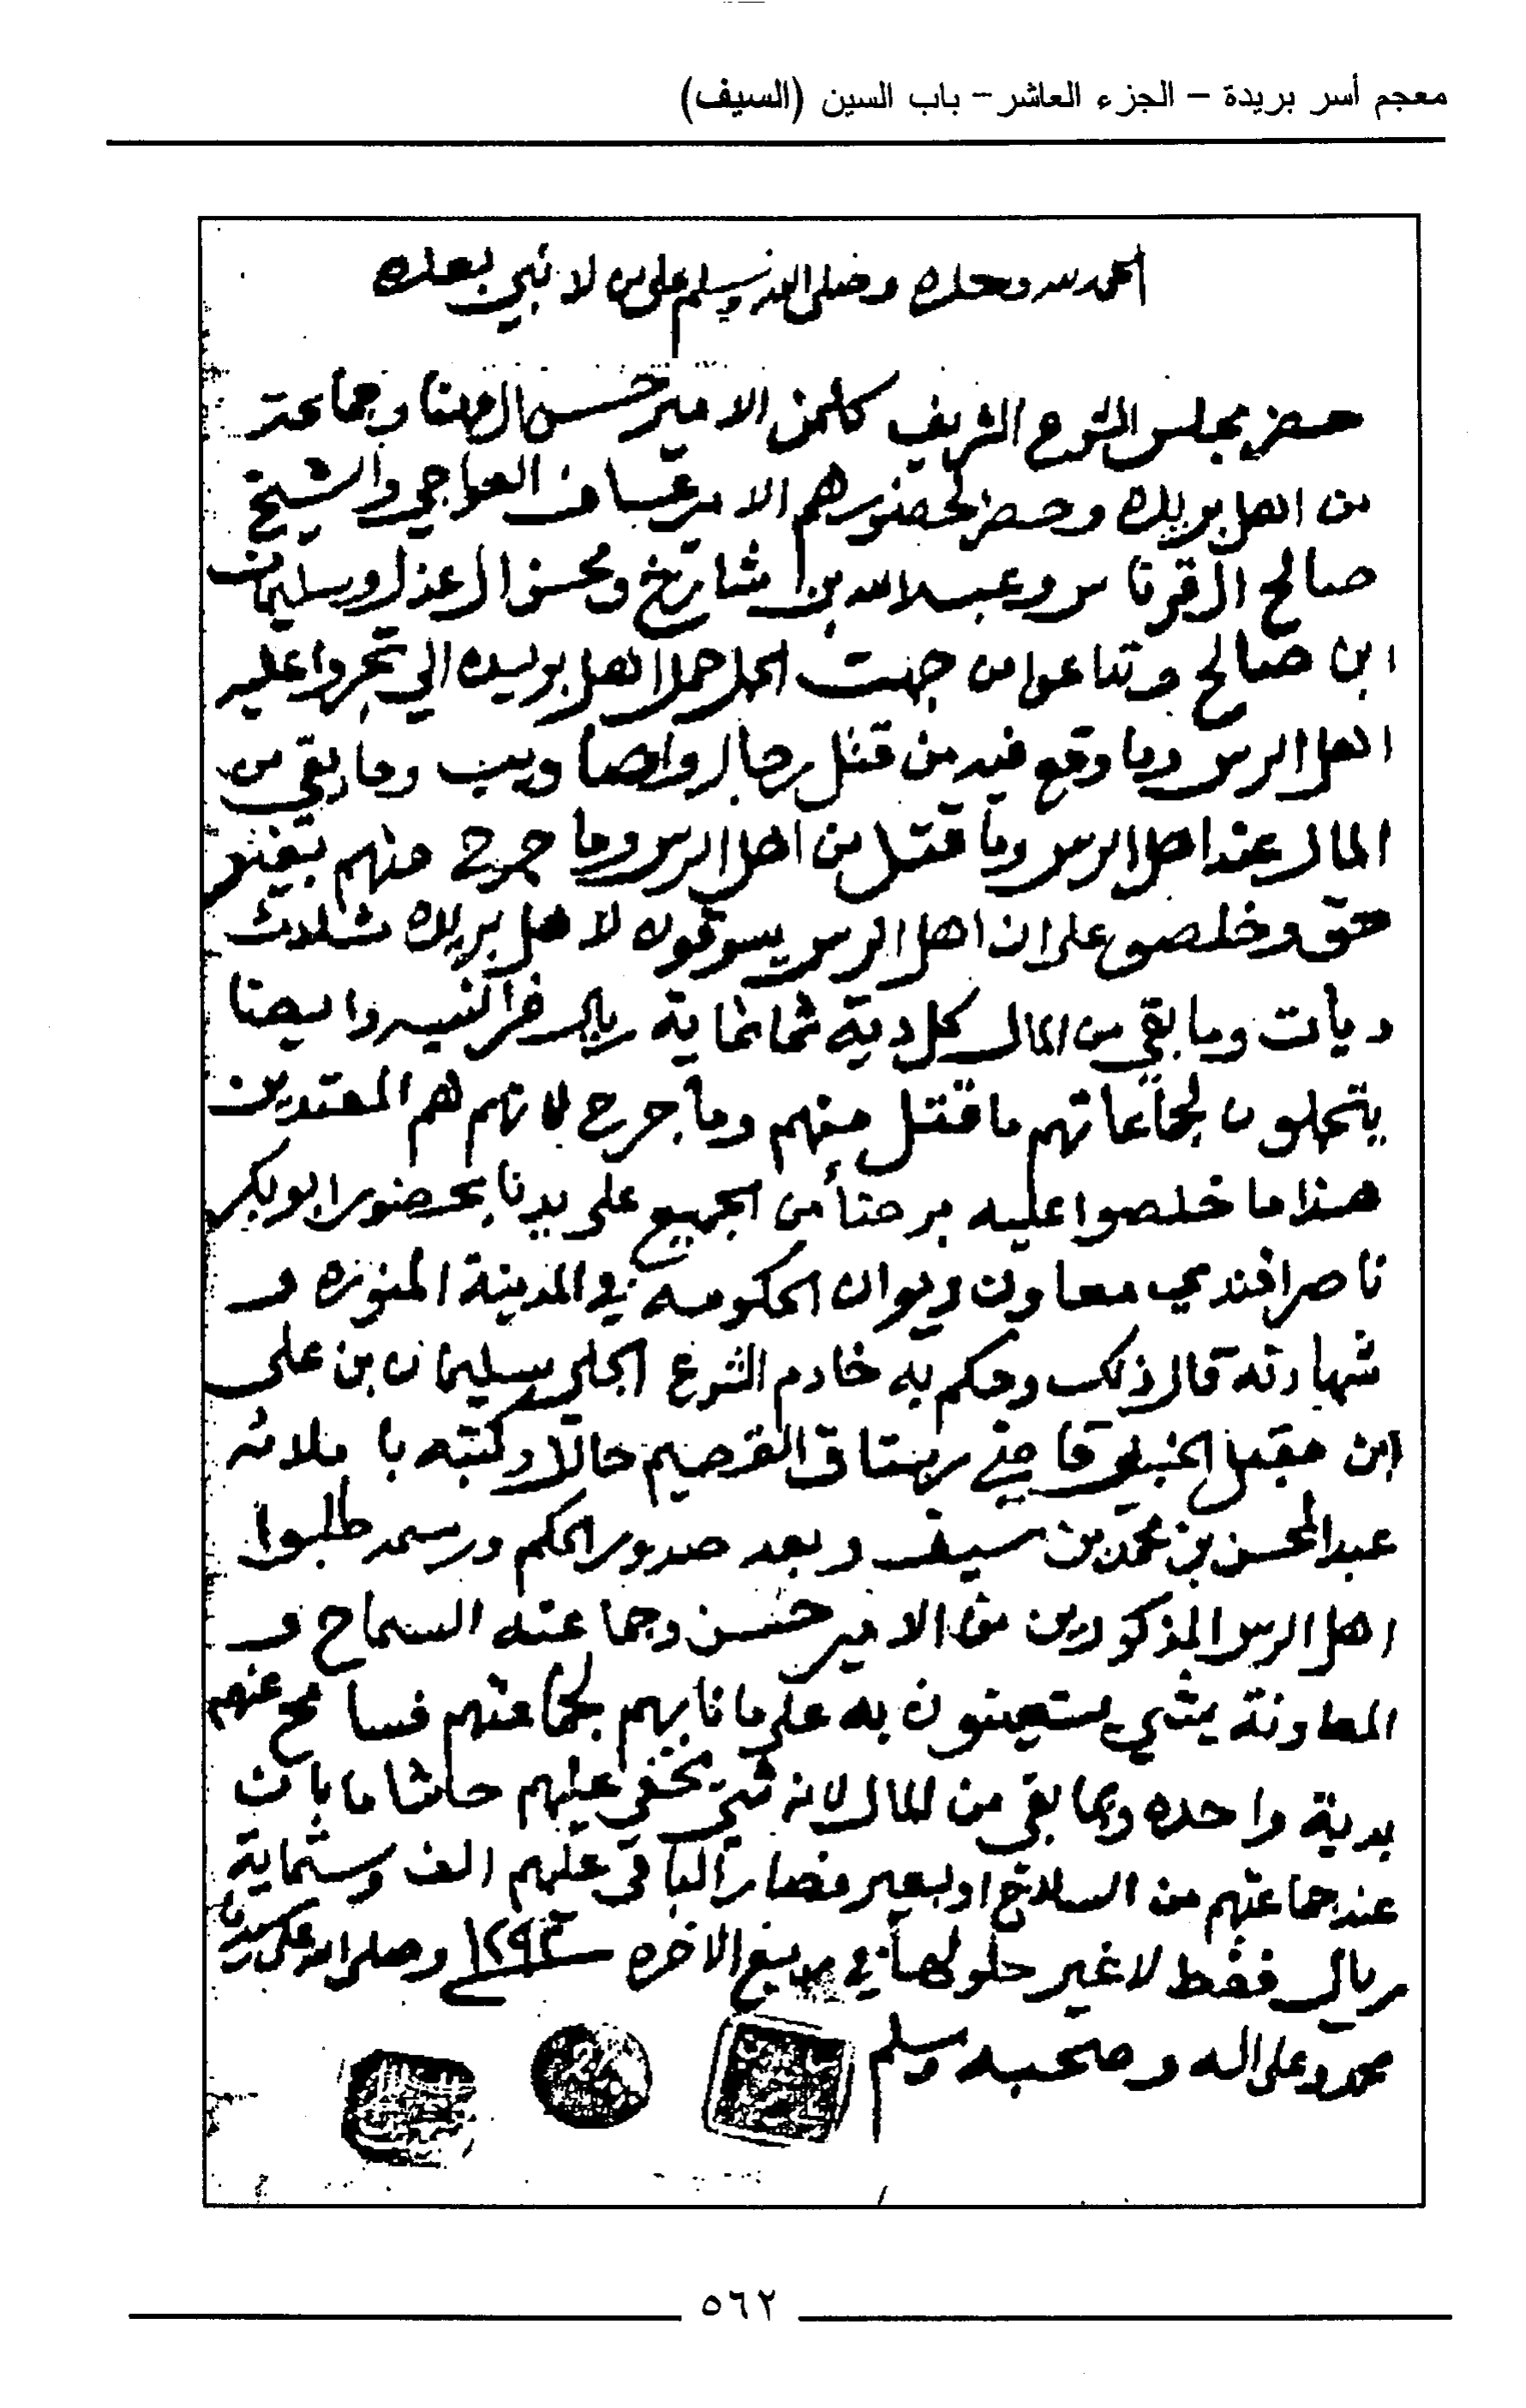 معجم أسر بريدة – الجزء العاشر – باب السين (السيف)
الحمد لله وحده وصلى الله وسلم على من لا نبي بعده
حضر مجلس الشرع الشريف كلمن الامير حسن المهنا وجماعته
من اهل بريده وحضر لحضورهم الامير عساف العواجي والشيخ
صالح القرناس وعبدالله بن شارخ ومحسن العذل وسليمان
ابن صالح وتداعوا من جهت الحل حمل اهل بريده الي تجروا عليه
اهل الرس وما وقع فيه من قتل رجال وصاويب وما بقي من
المال عند اهل الرس وما قتل من اهل الرس وما جرح منهم بغير
حق وخلصوا على ان اهل الرس يسوقون لاهل بريده ثلاث
ديات وما بقي من المال كل دية ثمانماية ريال فرانسه وايضا
يتحملون لجماعاتهم ما قتل منهم وما جرح لانهم هم المعتدين
هذا ما خلصوا عليه برضا من الجميع على يدنا بحضور ابوبكر
ناصر افندي معاون ديوان الحكومه في المدينة المنوره و
شهادته قال ذلك وحكم به خادم الشرع الجلي سليمان بن علي
ابن مقبل الحنبلي قاضي رستاق القصيم حالا وكتبه باملائه
عبدالمحسن بن محمد بن سيف وبعد صدور الحكم ورسمه طلبوا
اهل الرس المذكورين من الامير حسن وجماعته السماح و
المعاونة بشي يستعينون به على ما نابهم لجماعتهم فسامح عنهم
بدية واحده وبما بقي من المال لانه شي يخفي عليهم حاشا ما بان
عند جماعتهم من السلاح او بعير فصار الباقي عليهم الف وستماية
ريال فقط لاغير حلولها في ربيع الاخره سنة ١٢٩٣ وصلى الله على سيدنا
محمد وعلى اله وصحبه وسلم
٥٦٢